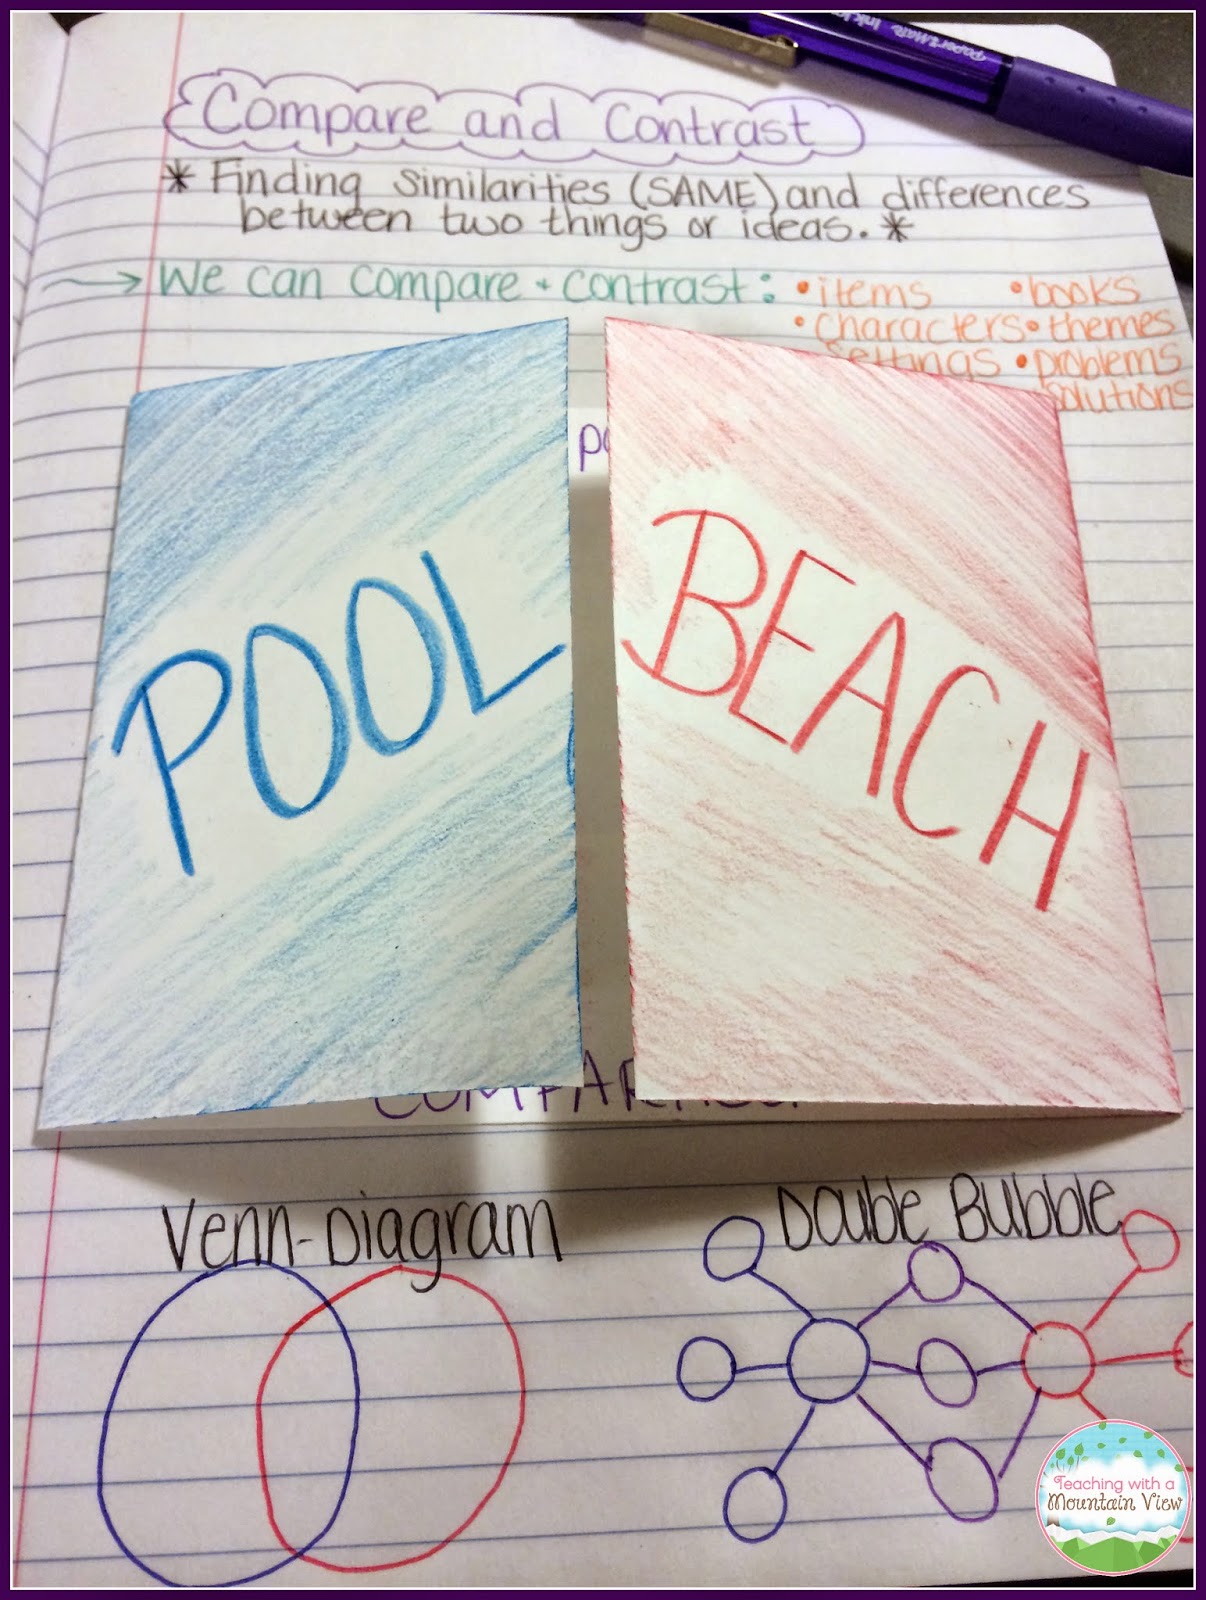 PaperMate InkJoy
Compare and Contrast
* Finding similarities (SAME) and differences
between two things or ideas. *
→ We can compare + contrast: • items • books
• characters • themes
settings • problems
solutions
POOL
BEACH
Venn-Diagram
Double Bubble
Teaching with a
Mountain View